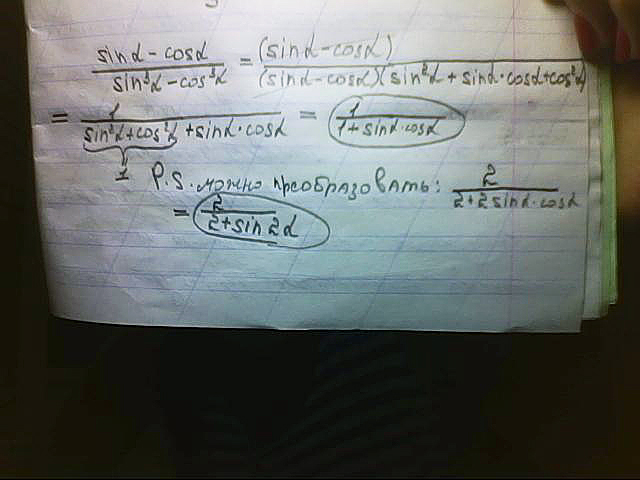 (sinα-cosα)/(sin³α-cos³α) = (sinα-cosα)/((sinα-cosα)(sin²α+sinα·cosα+cos²α))
= 1/(sin²α+cos²α+sinα·cosα) = 1/(1+sinα·cosα)
1 P.S. можно преобразовать: 2/(2+2sinα·cosα)
= 2/(2+sin2α)